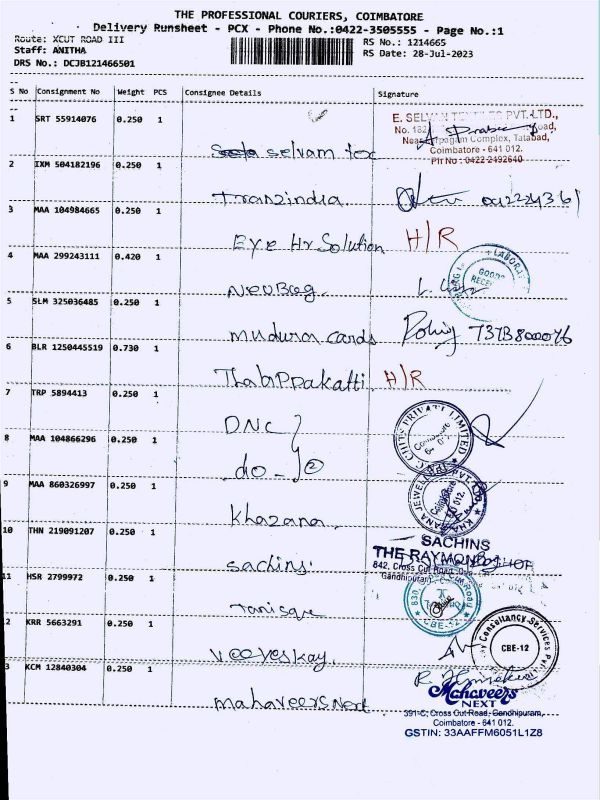 THE PROFESSIONAL COURIERS, COIMBATORE
Delivery Runsheet - PCX - Phone No.:0422-3505555 - Page No.:1
Route: XCUT ROAD III
RS No.: 1214665
Staff: ANITHA
RS Date: 28-Jul-2023
DRS No.: DCJB121466501
S No Consignment No Weight PCS Consignee Details Signature
1 SRT 55914076 0.250 1
selvam tex
E. SELVAM TEXTILES PVT. LTD.,
Coimbatore - 641 012.
Ph No : 0422 2492640
2 IXM 504182196 0.250 1
Tranzindia
3 MAA 104984665 0.250 1
Eye Hr Solution H/R
4 MAA 299243111 0.420 1
NeuBerg
GOODS
5 SLM 325036485 0.250 1
mudura cards
6 BLR 1250445519 0.730 1
Thalappakatti H/R
7 TRP 5894413 0.250 1
DNC
CHITS PRIVATE LIMITED
8 MAA 104866296 0.250 1
do 2
9 MAA 860326997 0.250 1
Khazana
10 THN 219091207 0.250 1
sachins
SACHINS
THE RAYMOND SHOP
842, Cross Cut Road,
Gandhipuram,
11 HSR 2799972 0.250 1
Tanisque
CBE-12
2 KRR 5663291 0.250 1
Veeyeskay
Consultancy Services Pvt
CBE-12
3 KCM 12840304 0.250 1
mahaveers Next
Mahaveers
NEXT
391-C, Cross Cut Road, Gandhipuram,
Coimbatore - 641 012.
GSTIN: 33AAFFM6051L1Z8